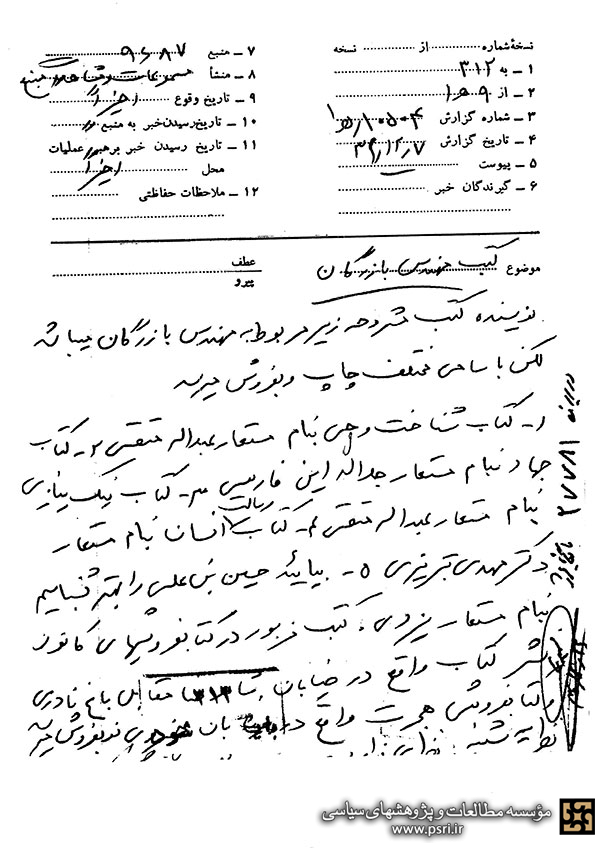 نسخهٔ شماره .......... از .......... نسخه
۱ ـ به ۳۱۲
۲ ـ از ۹ ه ۱
۳ ـ شماره گزارش
۴ ـ تاریخ گزارش
۵ ـ پیوست
۶ ـ گیرندگان خبر
۷ ـ منبع ۹۶۸۷
۸ ـ منشأ مسموعات و مشاهدات منبع
۹ ـ تاریخ وقوع اخیراً
۱۰ ـ تاریخ رسیدن خبر به منبع
۱۱ ـ تاریخ رسیدن خبر برهبر عملیات
محل اخیراً
۱۲ ـ ملاحظات حفاظتی
موضوع کتب مهندس بازرگان
عطف
پیرو
نویسنده کتب مشروحه زیر مربوط به مهندس بازرگان میباشد
لکن با اسامی مختلف چاپ و بفروش میرسد
۱ـ کتاب شناخت وحی بنام مستعار عبداله متقی ۲ـ کتاب
جهاد بنام مستعار جداله فارسی ۳ـ کتاب نیک نیازی
بنام مستعار عبداله متقی ۴ـ کتاب رسالت انسان بنام مستعار
دکتر مهدی تبریزی ۵ـ بیائید حسین بن علی را بهتر بشناسیم
بنام مستعار یزدی. کتب مزبور در کتابفروشیهای کانون
نشر کتاب واقع در خیابان شاه مقابل باغ نادری
و کتابفروشی هجرت واقع در خیابان بفروش میرسد
نظریه شنبه
مؤسسه مطالعات و پژوهشهای سیاسی
www.psri.ir